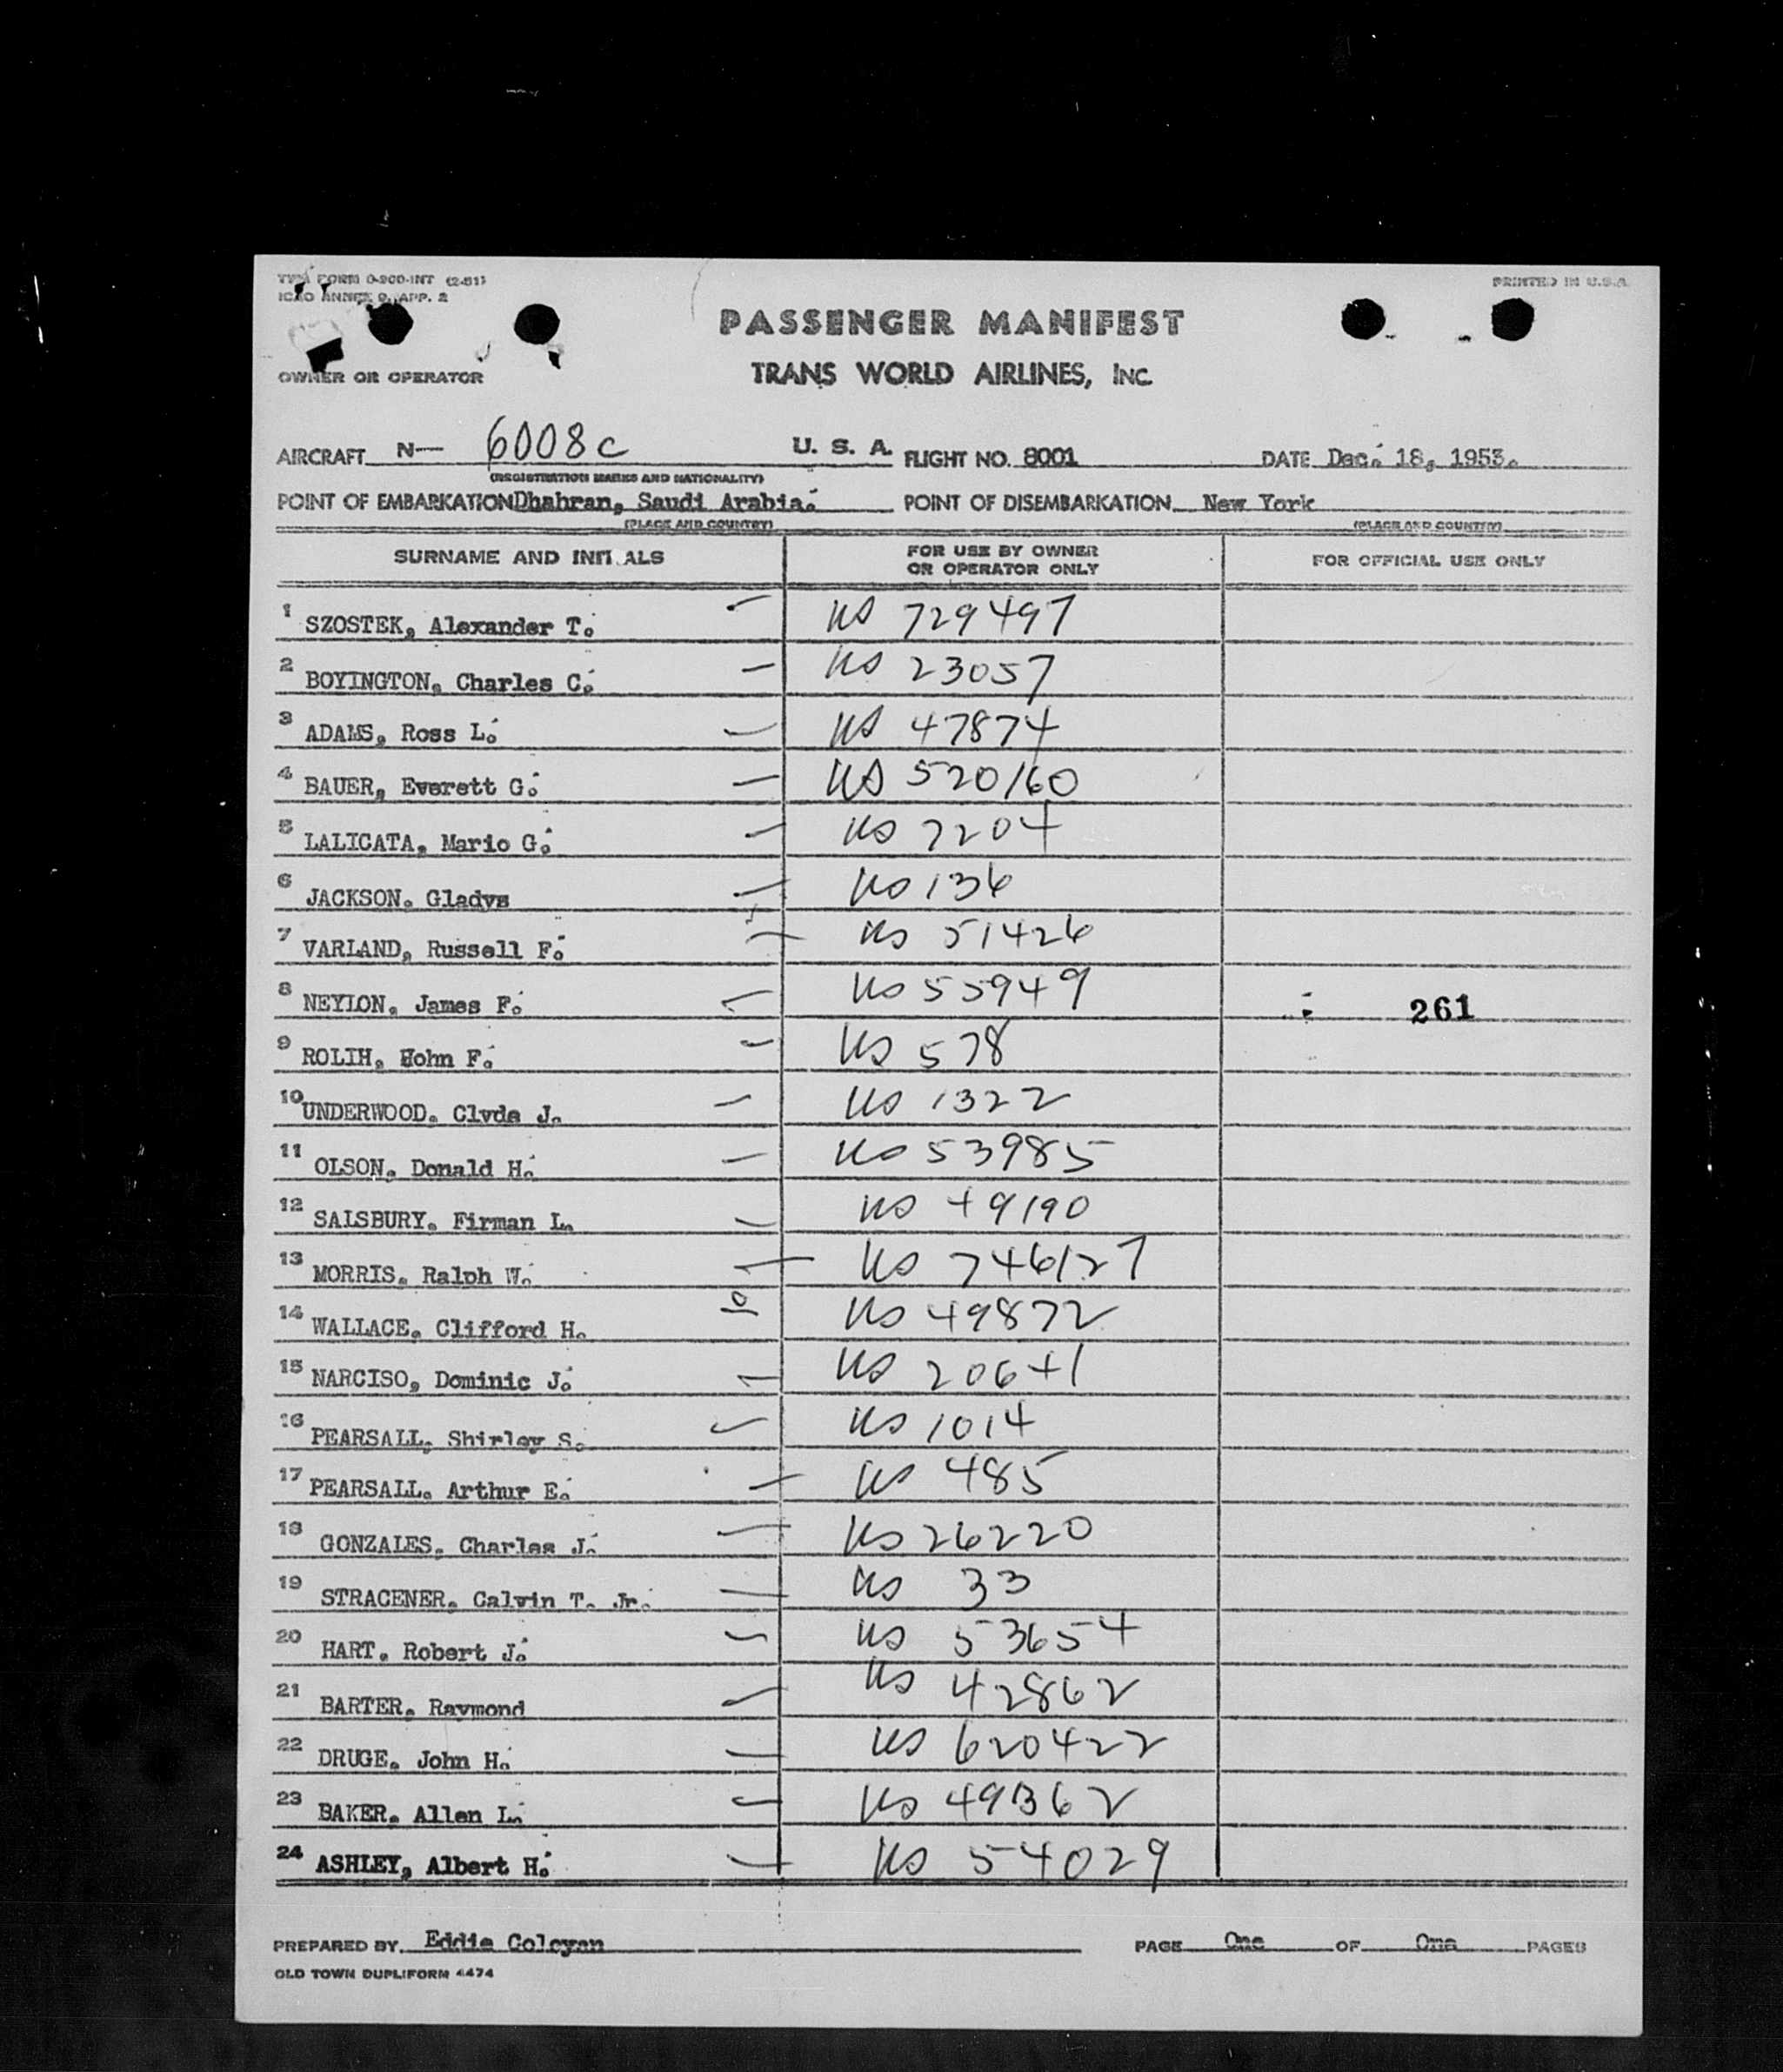 TWA FORM 0-200-INT (2-51)
PRINTED IN U.S.A.
ICAO ANNEX 9, APP. 2
PASSENGER MANIFEST
OWNER OR OPERATOR
TRANS WORLD AIRLINES, INC.
AIRCRAFT N— 6008C U. S. A. FLIGHT NO. 8001 DATE Dec. 18, 1953.
(REGISTRATION MARKS AND NATIONALITY)
POINT OF EMBARKATION Dhahran, Saudi Arabia. POINT OF DISEMBARKATION New York
(PLACE AND COUNTRY) (PLACE AND COUNTRY)
SURNAME AND INITIALS FOR USE BY OWNER OR OPERATOR ONLY FOR OFFICIAL USE ONLY
1 SZOSTEK, Alexander T. US 729497
2 BOYINGTON, Charles C. US 23057
3 ADAMS, Ross L. US 47874
4 BAUER, Everett G. US 520160
5 LALICATA, Mario G. US 7204
6 JACKSON, Gladys US 136
7 VARLAND, Russell F. US 51426
8 NEYLON, James F. US 55949 261
9 ROLIH, Hohn F. US 578
10 UNDERWOOD, Clyde J. US 1322
11 OLSON, Donald H. US 53985
12 SALSBURY, Firman L. US 49190
13 MORRIS, Ralph W. US 746127
14 WALLACE, Clifford H. US 49872
15 NARCISO, Dominic J. US 20641
16 PEARSALL, Shirley S. US 1014
17 PEARSALL, Arthur E. US 485
18 GONZALES, Charles J. US 26220
19 STRACENER, Calvin T. Jr. US 33
20 HART, Robert J. US 53654
21 BARTER, Raymond US 42862
22 DRUGE, John H. US 620422
23 BAKER, Allen L. US 49362
24 ASHLEY, Albert H. US 54029
PREPARED BY Eddie Coloyan PAGE One OF One PAGES
OLD TOWN DUPLIFORM 4474